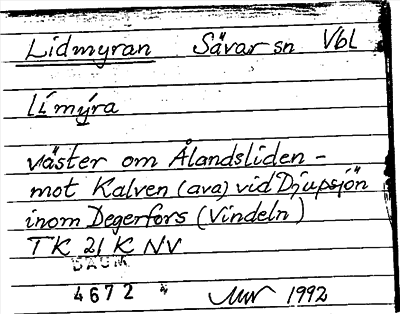 Lidmyran Sävar sn Vbl
lí mýra
väster om Ålandsliden -
mot Kalven (ava) vid Djupsjön
inom Degerfors (Vindeln)
TK 21 K NV
DAUM
4672 1992